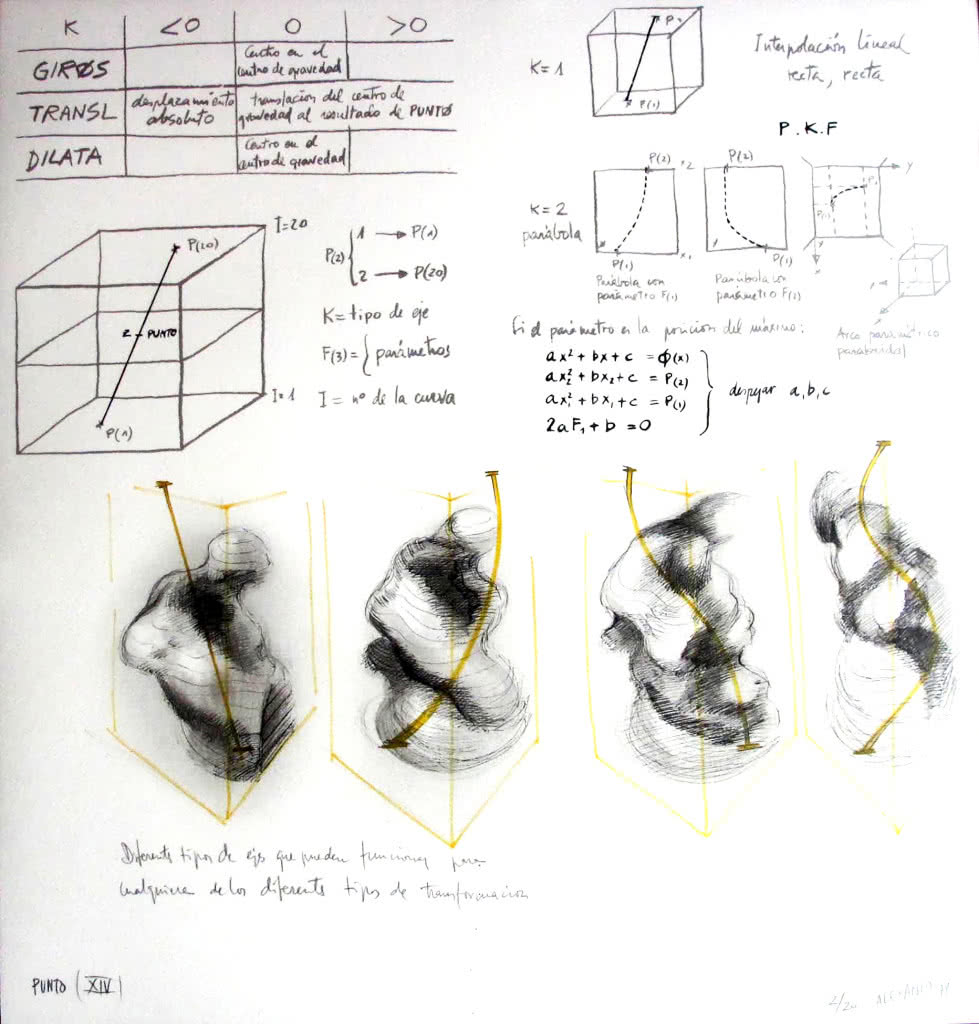 K <0 0 >0
GIROS Centro en el
centro de gravedad
TRANSL desplazamiento
absoluto
translacion del centro de
gravedad al resultado de PUNTO
DILATA Centro en el
centro de gravedad
K=1
P2
P(1)
Interpolación lineal
recta, recta
P.K.F
K=2
parábola
P(2) x2
P(1) x1
Parábola con
parámetro F(1)
P(2)
P(1)
Parábola con
parámetro F(2)
y
P2
P(1)
x
Arco paramétrico
paraboidal
I=20
P(20)
2 - PUNTO
I=1
P(1)
P(2) { 1 → P(1)
2 → P(20)
K= tipo de eje
F(3) = { parámetros
I = nº de la curva
Si el parámetro es la posicion del máximo:
ax² + bx + c = ϕ(x)
ax₂² + bx₂ + c = P(2)
ax₁² + bx₁ + c = P(1)
2aF₁ + b = 0
despejar a, b, c
Diferentes tipos de ejes que pueden funcionar para
cualquiera de los diferentes tipos de transformacion
PUNTO (XIV)
2/20